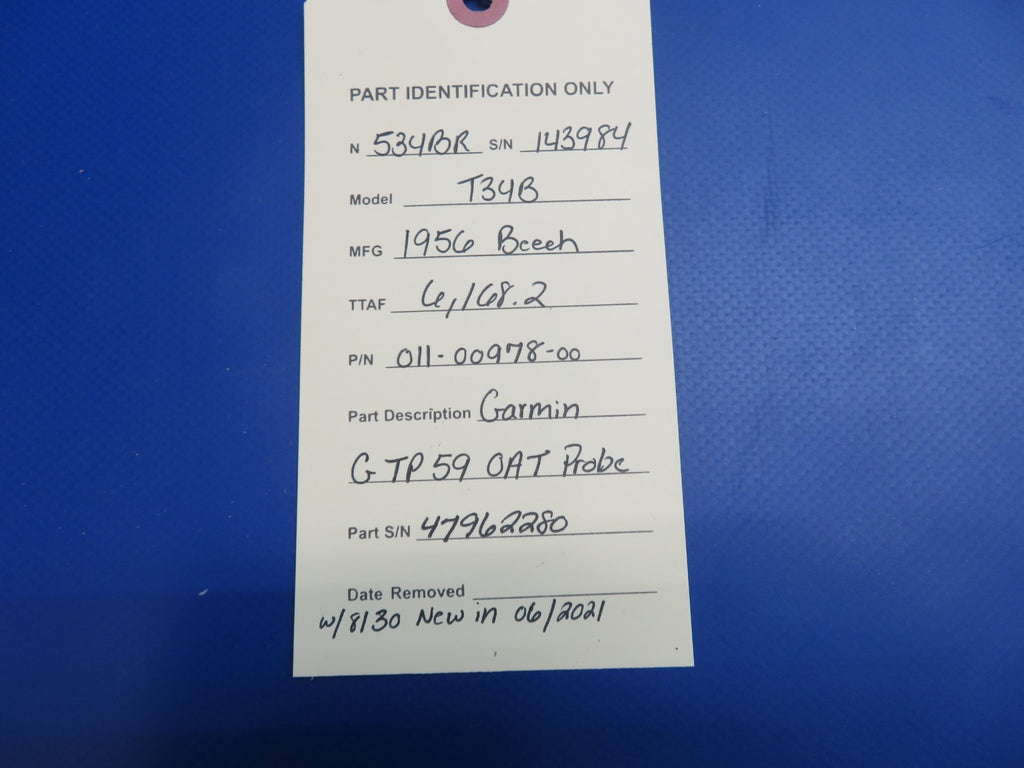 PART IDENTIFICATION ONLY
N 534BR S/N 143984
Model T34B
MFG 1956 Beech
TTAF 6,168.2
P/N 011-00978-00
Part Description Garmin
GTP 59 OAT Probe
Part S/N 47962280
Date Removed
w/8130 New in 06/2021